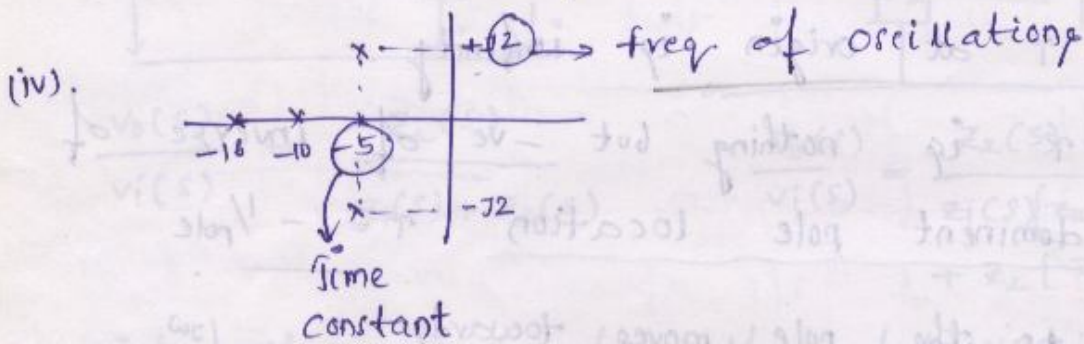 +J2 → freq of oscillations
(iv).
-16 -10 -5
-J2
Time
constant